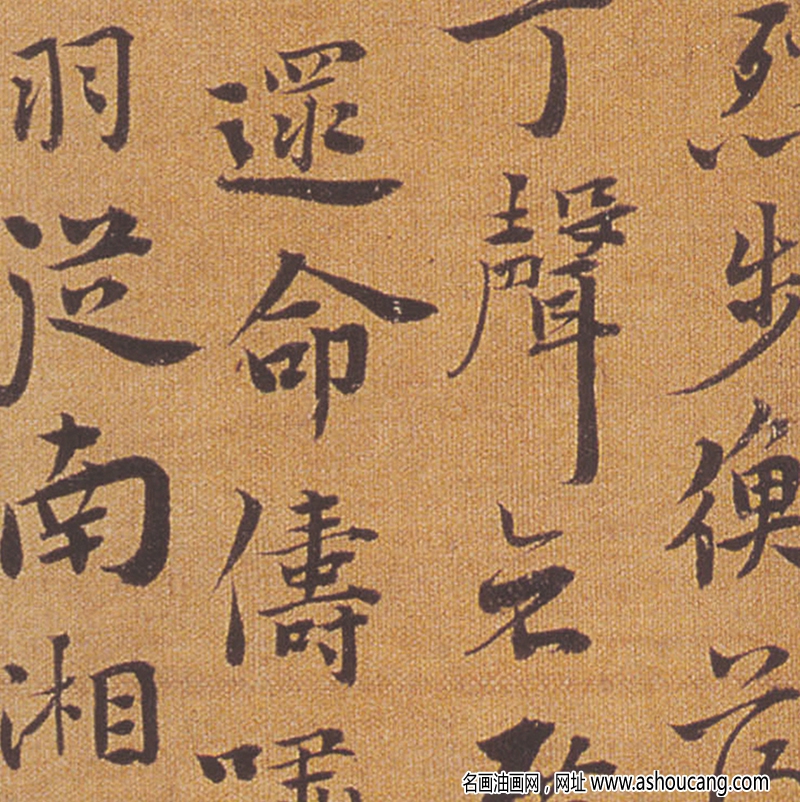 烈步衡薄
兮聲哀
遝命儔嘯
羽從南湘
名画油画网,网址 www.ashoucang.com